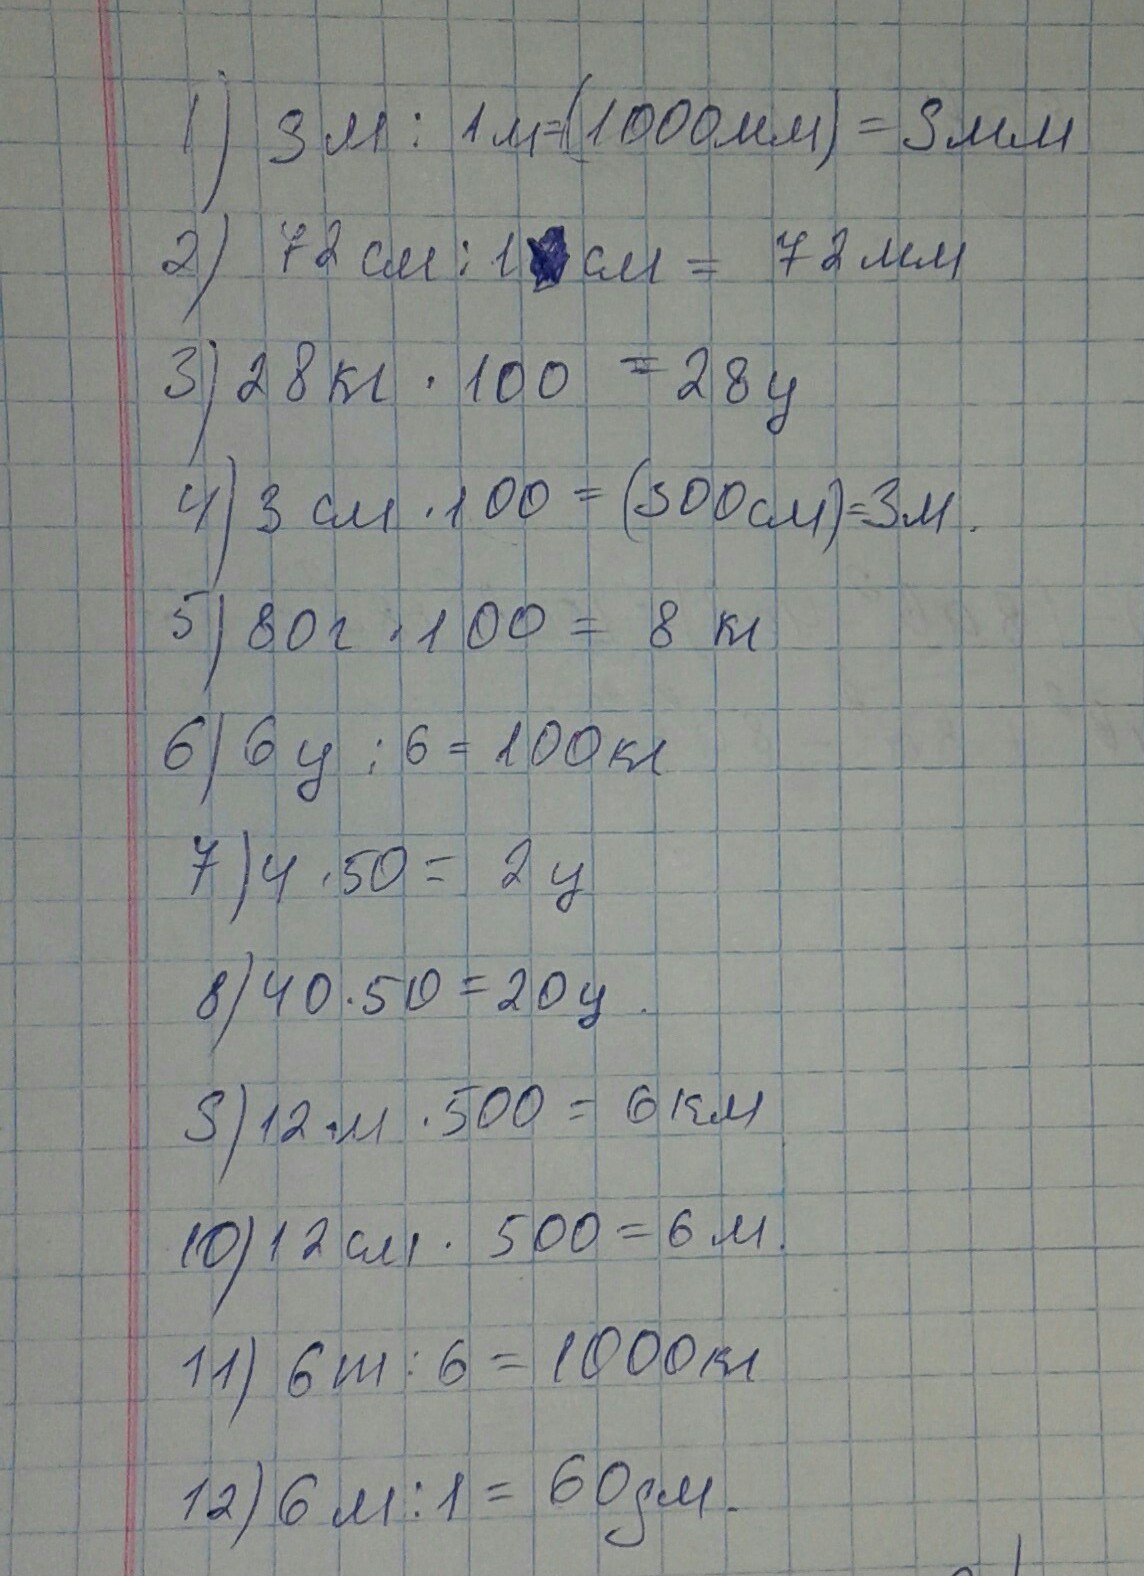 1) 3м : 1м=(1000мм) = 3мм
2) 72 см : 1 см = 72мм
3) 28кг · 100 = 28ц
4) 3 см · 100 = (300см)=3м.
5) 80г · 100 = 8 кг
6) 6ц : 6 = 100кг
7) 4 · 50 = 2ц
8) 40 · 50 = 20ц.
9) 12 м · 500 = 6км
10) 12см · 500 = 6м.
11) 6т : 6 = 1000кг
12) 6м : 1 = 60дм.